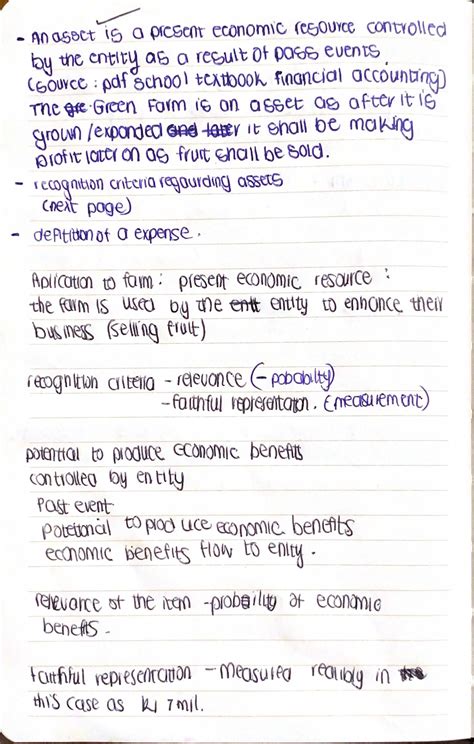 - An asset is a present economic resource controlled
by the entity as a result of pass events.
(source: pdf school textbook financial accounting)
The Green Farm is an asset as after it is
grown / expanded and later it shall be making
profit later on as fruit shall be sold.
- recognition criteria regaurding assets
(next page)
- defitition of a expense.
Aplication to farm: present economic resource:
the farm is used by the entt entity to enhance their
business (selling fruit)
recognition criteria - relevance (- pobability)
- faithful representation. (measurement)
potential to produce economic benefits
controlled by entity
Past event
Potetional to produce economic benefits
economic benefits flow to enity.
relevance of the item - probility of economic
benefits.
faithful representation - Measured realibly in the
this case as R1 7mil.